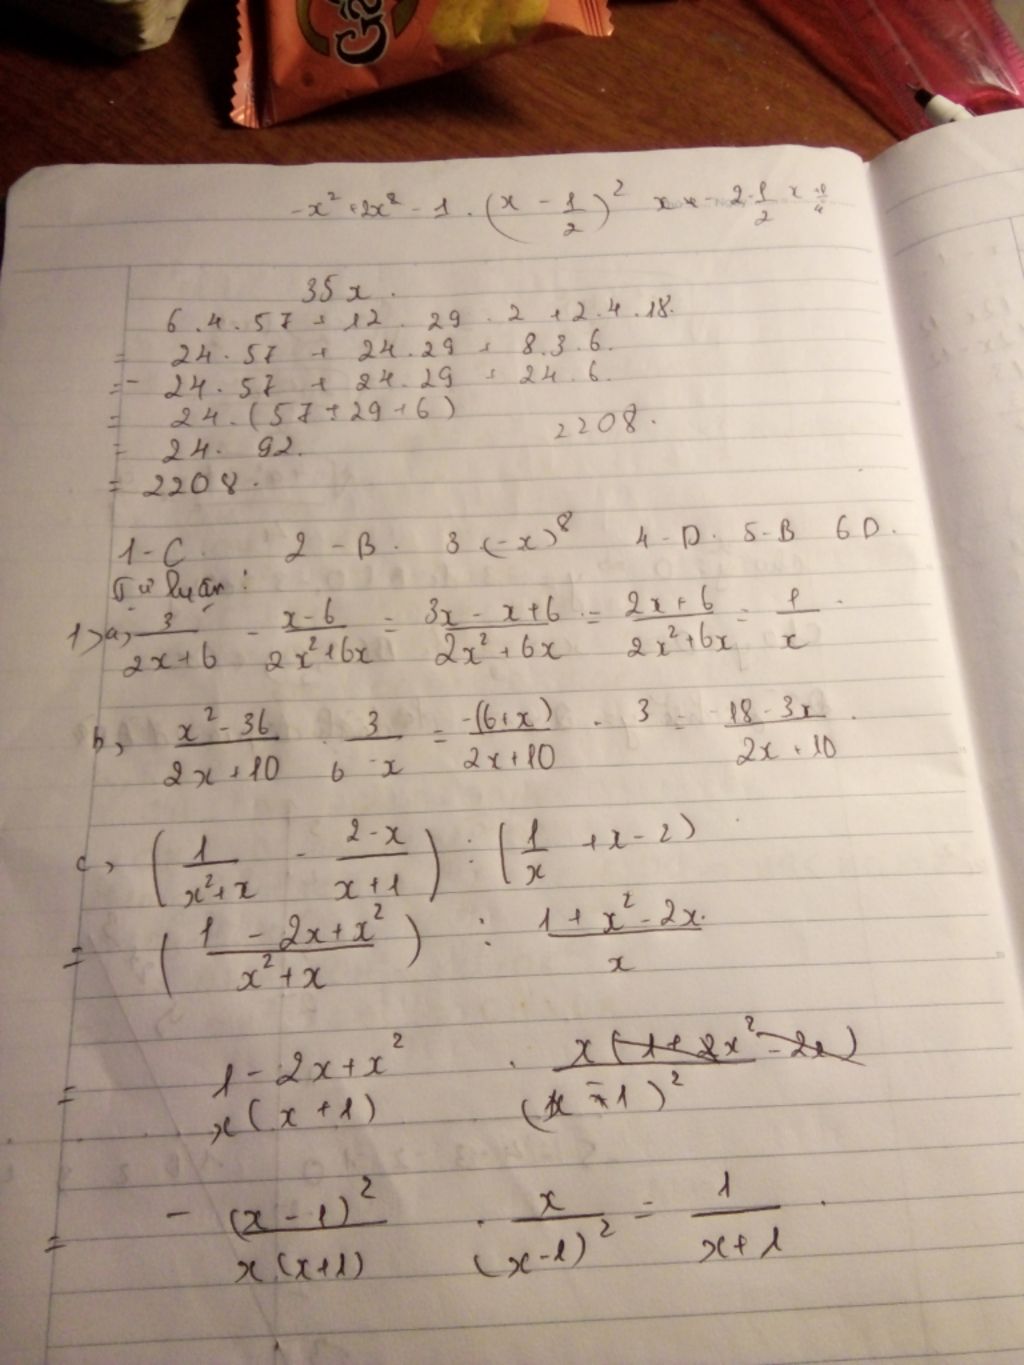 -x² + 2x² - 1 . (x - 1/2)²
35x.
6.4.57 + 12.29.2 + 2.4.18.
= 24.57 + 24.29 + 8.3.6.
= 24.57 + 24.29 + 24.6.
= 24.(57+29+6) 2208.
= 24. 92.
= 2208.
1-C 2-B. 3 (-x)⁸ 4-D. 5-B 6D.
Tự luận:
1> a, 3/(2x+6) - (x-6)/(2x²+6x) = (3x-x+6)/(2x²+6x) = (2x+6)/(2x²+6x) = 1/x.
b, (x²-36)/(2x+10) . 3/(6-x) = -(6+x)/(2x+10) . 3 = (-18-3x)/(2x+10).
c, (1/(x²+x) - (2-x)/(x+1)) : (1/x + x - 2)
= ((1-2x+x²)/(x²+x)) : (1+x²-2x)/x
= (1-2x+x²)/(x(x+1)) . x/(x-1)²
= (x-1)²/(x(x+1)) . x/(x-1)² = 1/(x+1).